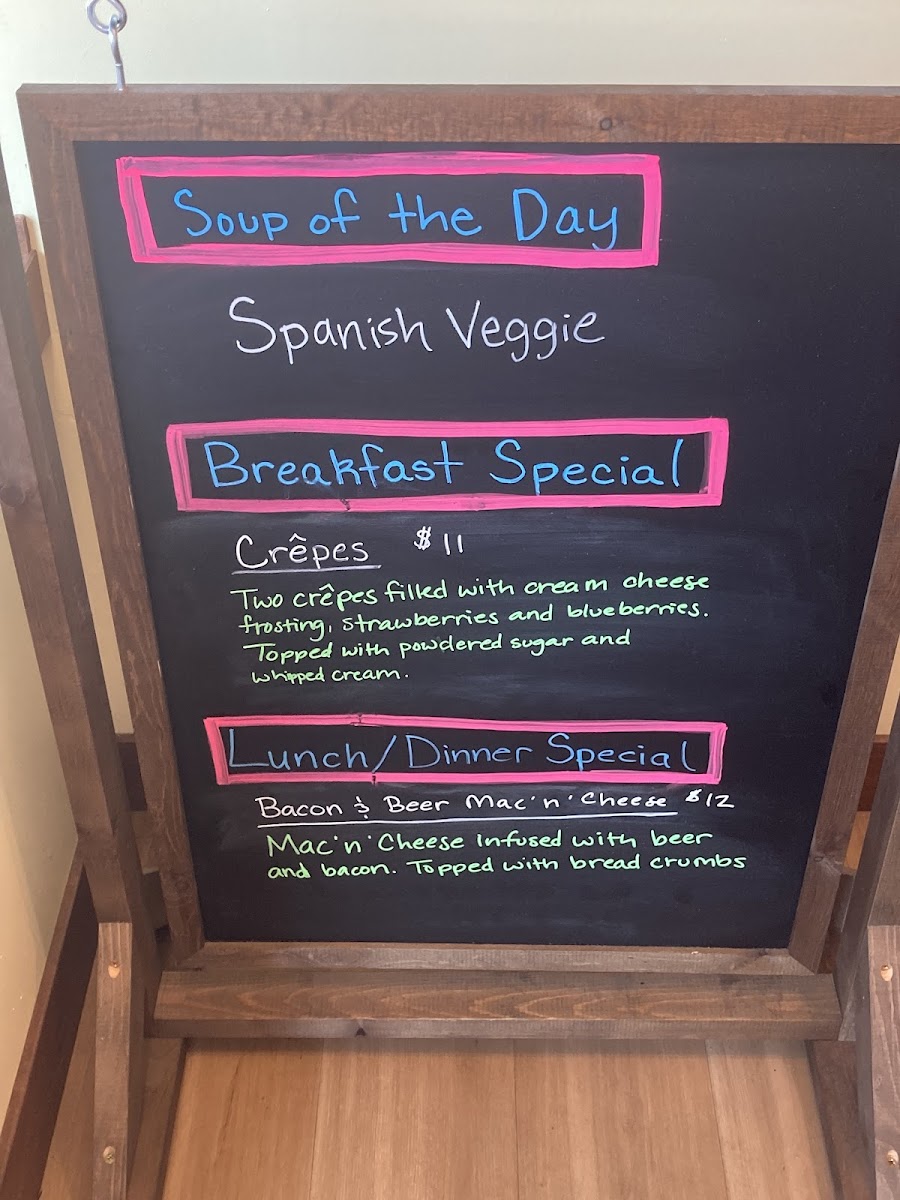 Soup of the Day
Spanish Veggie
Breakfast Special
Crêpes $11
Two crêpes filled with cream cheese
frosting, strawberries and blueberries.
Topped with powdered sugar and
whipped cream.
Lunch/Dinner Special
Bacon & Beer Mac'n'Cheese $12
Mac'n'Cheese infused with beer
and bacon. Topped with bread crumbs